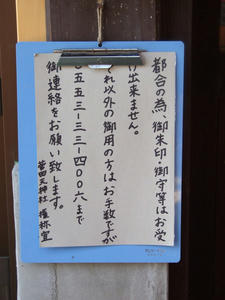 都合の為、御朱印・御守等はお受
け出来ません。
それ以外の御用の方はお手数ですが
〇五五三ー三三ー四〇〇六まで
御連絡をお願い致します。
菅田天神社 権祢宜